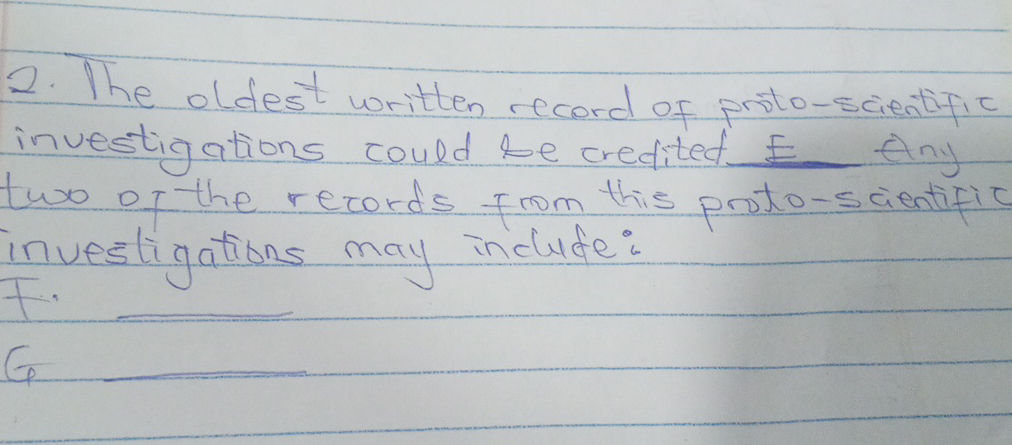 2. The oldest written record of proto-scientific
investigations could be credited E ____ Any
two of the records from this proto-scientific
investigations may include:
F. ____
G ____